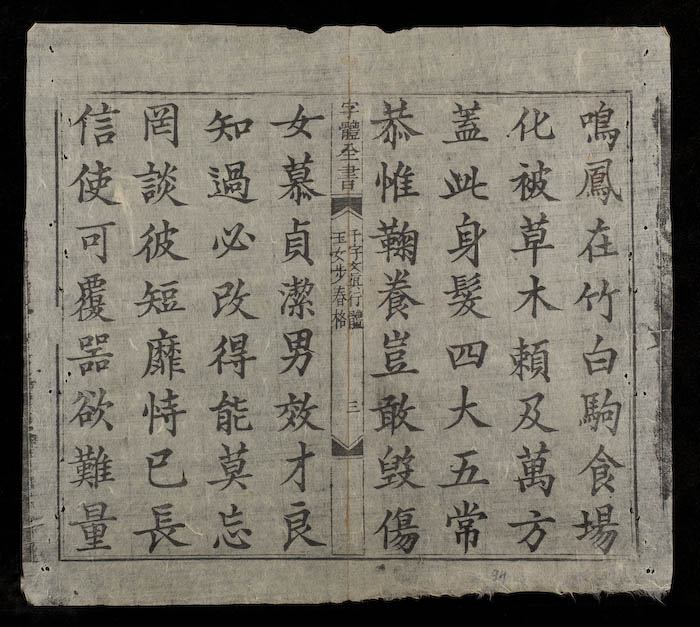 鳴鳳在竹白駒食場
化被草木賴及萬方
蓋此身髮四大五常
恭惟鞠養豈敢毀傷
字體全書
千字文真行體
玉女步春格
三
女慕貞潔男效才良
知過必改得能莫忘
罔談彼短靡恃已長
信使可覆器欲難量